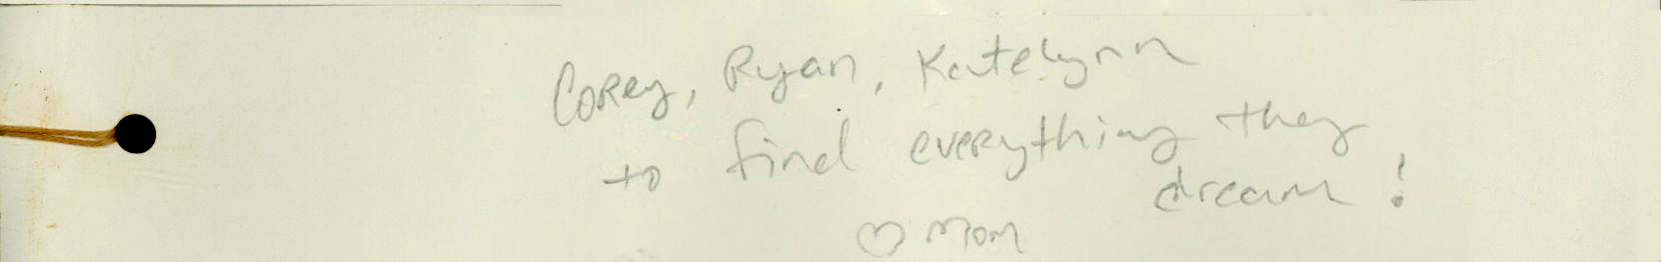 Corey, Ryan, Katelynn
to find everything they
dream!
♡ Mom